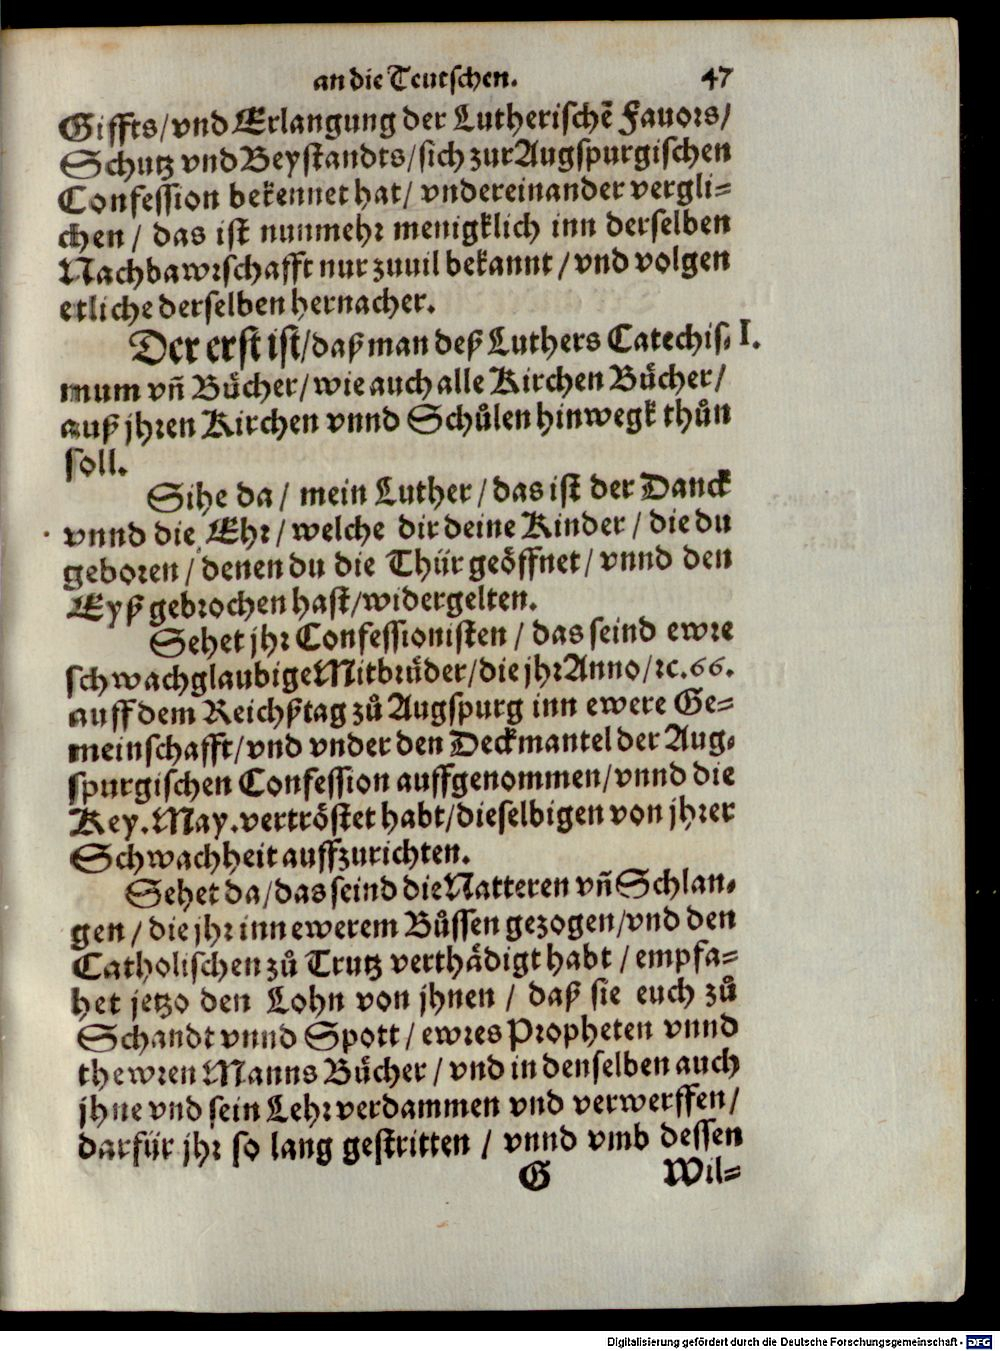 an die Teutschen. 47
Giffts/vnd Erlangung der Lutherischē Fauors/
Schutz vnd Beystandts/sich zur Augspurgischen
Confession bekennet hat/ vndereinander vergli=
chen / das ist nunmehr menigklich inn derselben
Nachbawrschafft nur zuuil bekannt / vnd volgen
etliche derselben hernacher.
Der erst ist/daß man deß Luthers Catechis= I.
mum vñ Bůcher/wie auch alle Kirchen Bůcher/
auß jhren Kirchen vnnd Schůlen hinwegk thůn
soll.
Sihe da / mein Luther / das ist der Danck
vnnd die Ehr / welche dir deine Kinder / die du
geboren / denen du die Thür geöffnet / vnnd den
Eyß gebrochen hast/widergelten.
Sehet jhr Confessionisten / das seind ewre
schwachglaubige Mitbrüder/die jhr Anno/ꝛc. 66.
auff dem Reichßtag zů Augspurg inn ewere Ge=
meinschafft/vnd vnder den Deckmantel der Aug=
spurgischen Confession auffgenommen/vnnd die
Key. May. vertröstet habt/dieselbigen von jhrer
Schwachheit auffzurichten.
Sehet da/das seind die Natteren vñ Schlan=
gen / die jhr inn ewerem Bůssen gezogen/vnd den
Catholischen zů Trutz verthädigt habt / empfa=
het jetzo den Lohn von jhnen / daß sie euch zů
Schandt vnnd Spott / ewres Propheten vnnd
thewren Manns Bůcher / vnd in denselben auch
jhne vnd sein Lehr verdammen vnd verwerffen /
darfür jhr so lang gestritten / vnnd vmb dessen
G Wil=
Digitalisierung gefördert durch die Deutsche Forschungsgemeinschaft - DFG